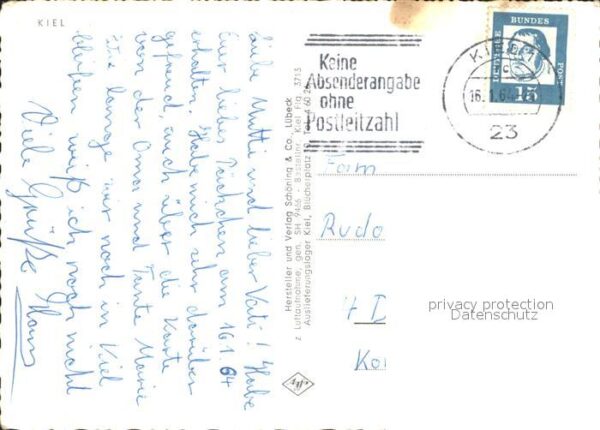 KIEL
Liebe Mutti und lieber Vati! Habe
Euer liebes Päckchen am 16.1.64
erhalten. Habe mich sehr darüber
gefreut, auch über die Karte
von der Oma und Tante Marie
Wie lange wir noch in Kiel
bleiben weiß ich noch nicht
Viele Grüße
Hans
Hersteller und Verlag Schöning & Co., Lübeck
z Luftaufnahme, gen. SH 9466 - Bestellnr. Kiel Flg 3713
Auslieferungslager Kiel, Blücherplatz
Keine
Absenderangabe
ohne
Postleitzahl
KIEL
16.1.64
23
DEUTSCHE
BUNDES
POST
15
Fam
Rudo
Kai
privacy protection
Datenschutz